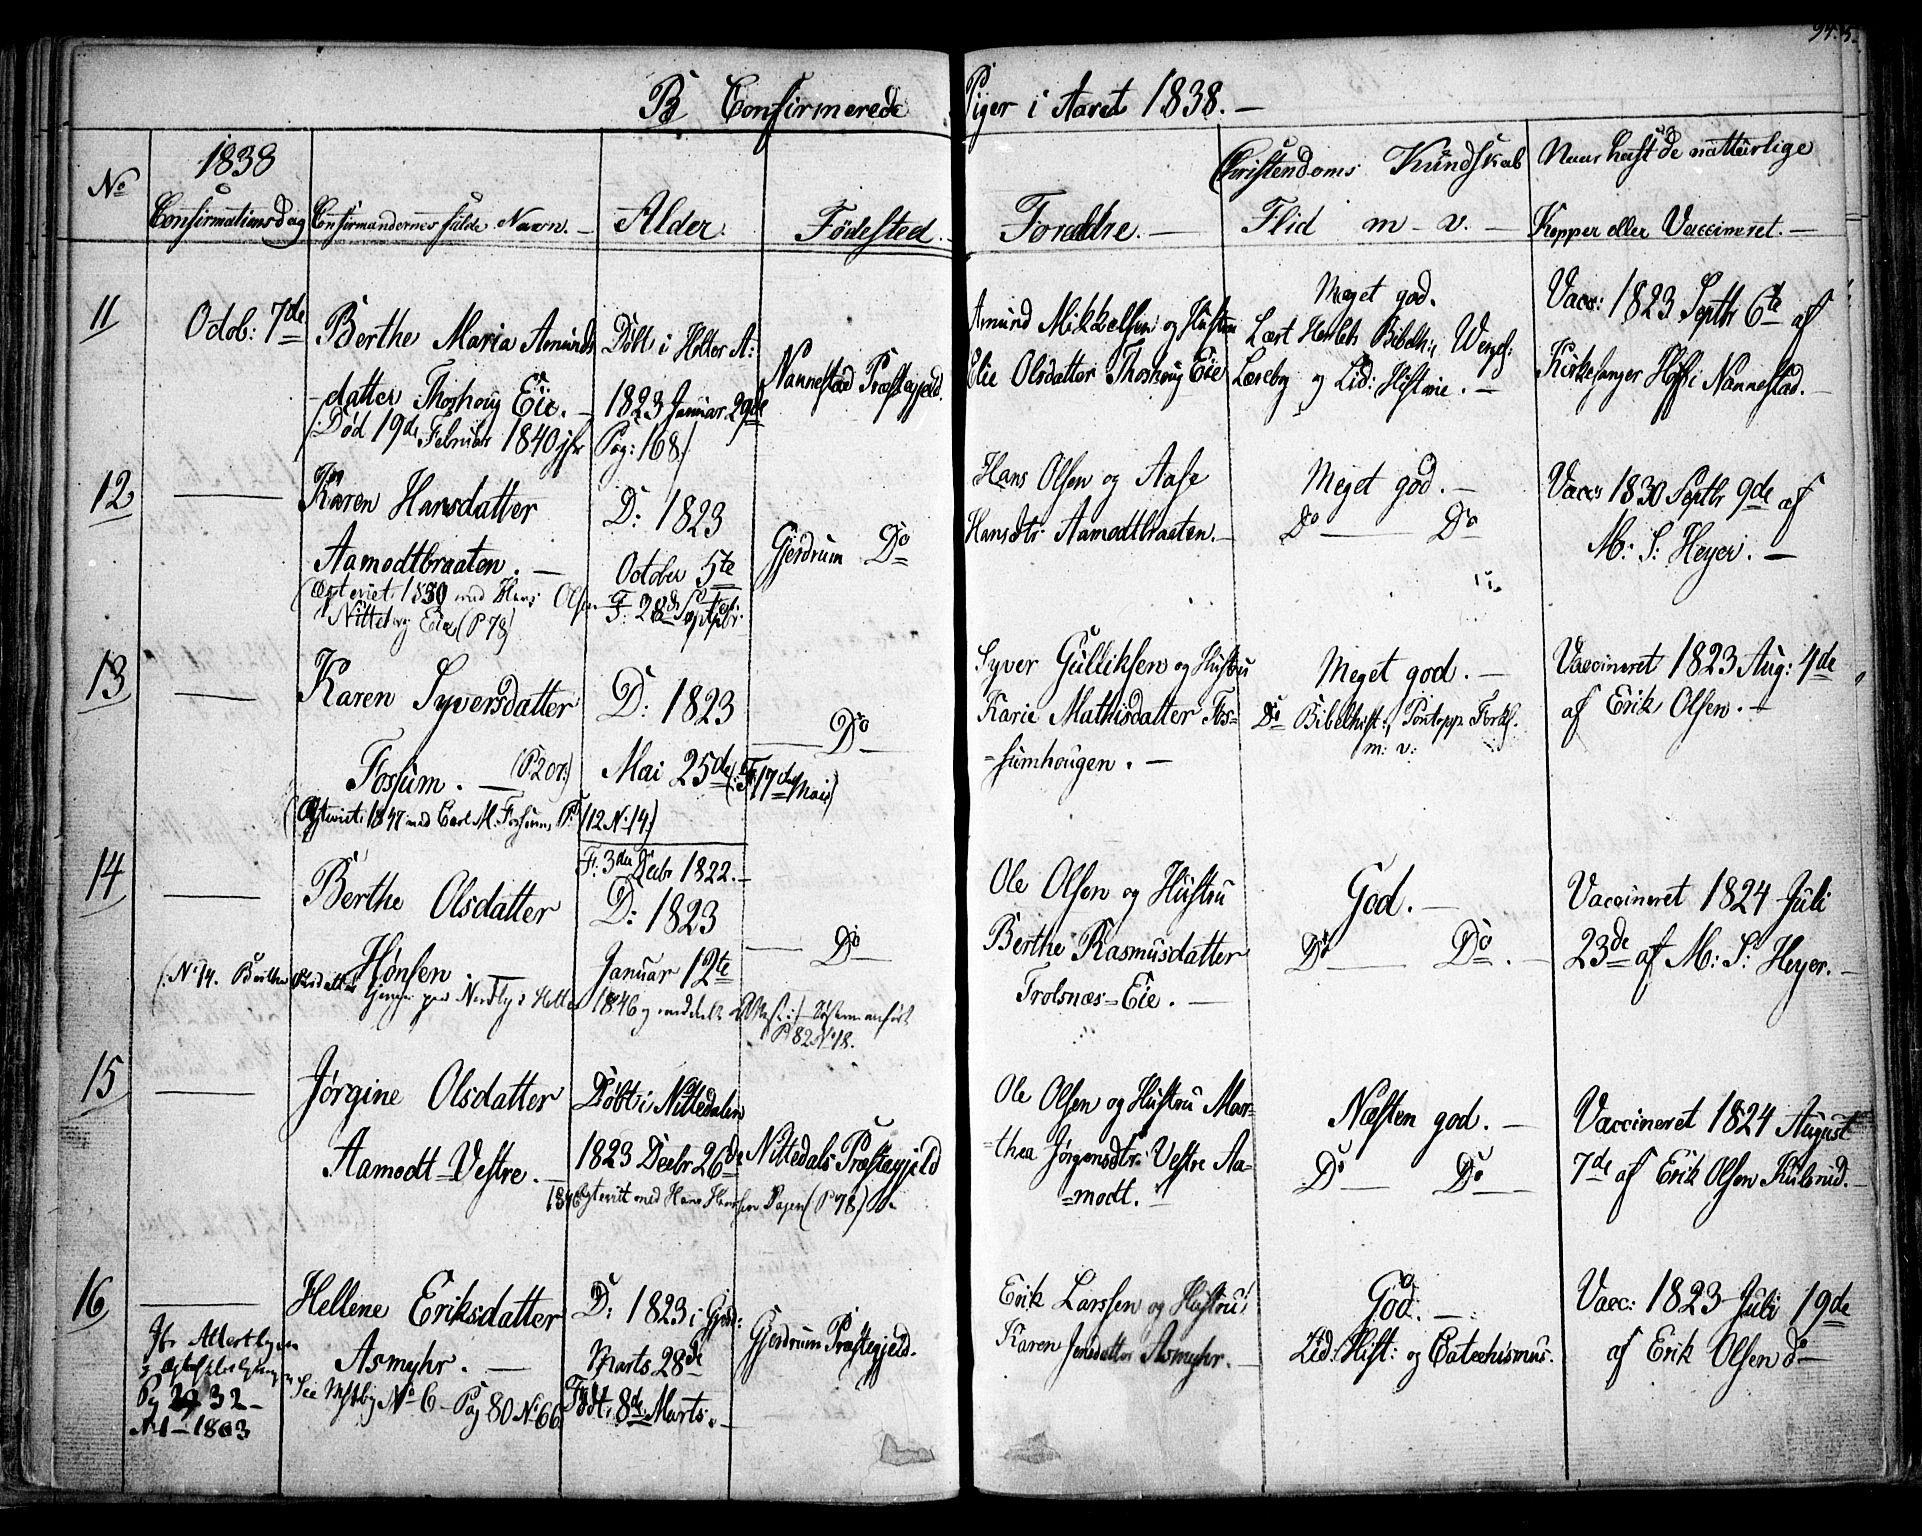 B Confirmerede Piger i Aaret 1838. —
No
1838
Confirmationsdag
Confirmandernes fulde Navn. —
Alder.
Fødested. —
Forældre. —
Christendoms Kundskab
Flid m. v. —
Naar havt de naturlige
Kopper eller Vaccineret. —
11
Octob: 7de
Berthe Maria Amunds
datter Thoshoug Eie. —
(Død 19de Februar 1840 jfr Pag: 168)
Døbt i Holter A:
1823 Januar 29de
Nannestad Præstegjeld.
Amund Mikkelsen og Hustru
Olsdatter Thoshoug Eie
Meget god.
Læst Bibelh:
Lærebog og Lid: Historie. —
Vacc: 1823 Septbr 6te af
Kirkesanger Nannestad. —
12
Karen Hansdatter
Aamodtbraaten. —
med Hans Olsen
Eie (P 78)
D: 1823
October 5te
F: 28de Septbr:
Gjerdrum Do
Hans Olsen og Aase
Hansdtr: Aamodtbraaten. —
Meget god. —
Do — Do
Vacc 1830 Septbr 9de af
M: S: Heyer. —
13
Karen Syversdatter
Fossum. — (P. 207.)
1847 med Carl M. Fossum, P. 112 No 14.)
D: 1823
Mai 25de (F. 17de Mai)
— Do —
Syver Gulliksen og Hustru
Karie Mathisdatter Fos=
=sumhougen. —
Meget god. —
Do Bibelhist:, Pontopp: Forkl.
m: v:
Vaccineret 1823 Aug: 4de
af Erik Olsen. —
14
Berthe Olsdatter
Hønsen —
(No 14. Berthe Olsdatter
F: 3die Decbr 1822. —
D: 1823
Januar 12te
1846
P 82 No 18.
— Do —
Ole Olsen og Hustru
Berthe Rasmusdatter
Trolsnæs=Eie. —
God. —
Do — Do. —
Vaccineret 1824 Juli
23de af M: S: Heyer. —
15
Jørgine Olsdatter
Aamodt=Vestre. —
Døbt i Nittedalen
1823 Decbr 26de
Nittedals Præstegjeld
med Hans Hansen (P 78)
Ole Olsen og Hustru Mar=
=thea Jørgensdtr: Vestre Aa=
=modt. —
Næsten god. —
Do — Do —
Vaccineret 1824 August
7de af Erik Olsen Kulsrud. —
16
Hellene Eriksdatter
Asmyhr. —
See No 6 - Pag 80 No 66
32 —
1803
D: 1823 i Gjerd:
Marts 28de
Født 8de Marts. —
Gjerdrum Præstegjeld.
Erik Larssen og Hustru
Karen Jensdatter Asmyhr. —
God. —
Lid: Hist: og Catechismus.
Vacc: 1823 Juli 19de
af Erik Olsen do —